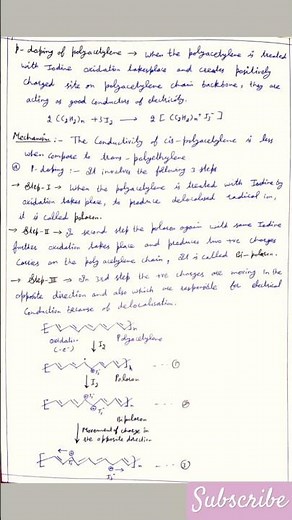 P-doping of polyacetylene → when the polyacetylene is treated
with Iodine oxidation takesplace and creates positively
charged site on polyacetylene chain backbone, they are
acting as good conductors of electricity.
2 (C2H2)n + 3I2 ⟶ 2 [(C2H2)n⁺ I3⁻]
Mechanism :- The Conductivity of cis-polyacetylene is less
when compose to trans-polyethylene
P-doping :- It involves the following 3 steps
→ Step-I → When the polyacetylene is treated with Iodine by
oxidation takes place, to produce delocalised radical ion,
it is called Poloron.
→ Step-II → In second step the poloron again with some Iodine
further oxidation takes place and produces two +ve charges
Carries on the poly acetylene chain, It is called Bi-poloron.
→ Step-III → In 3rd step the +ve charges are moving in the
opposite direction and also which are responsible for electrical
Conductive because of delocalisation.
oxidation
(-e⁻)
↓ I2
Polyacetylene
I3⁻
↓ I2
Poloron
--- ①
I3⁻
Bipoloron
--- ②
↓ Movement of charge in
the opposite direction
I3⁻
--- ③
Subscribe